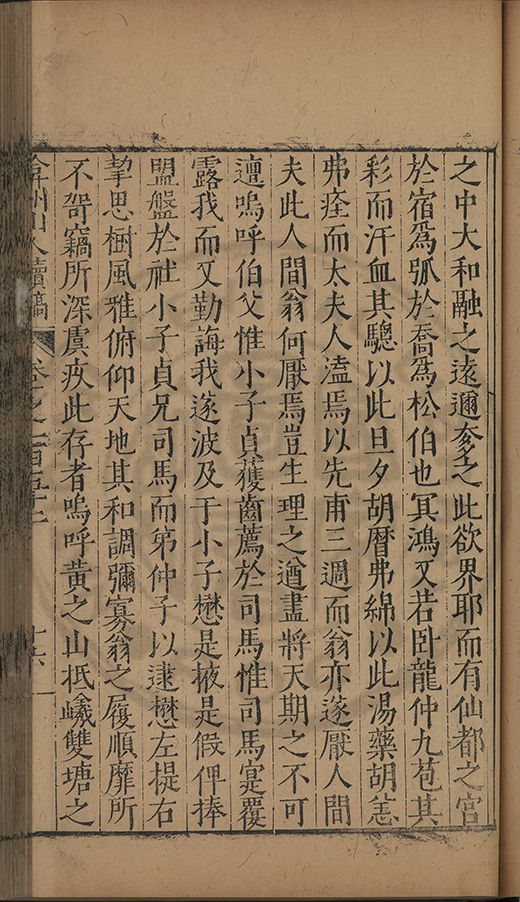 之中大和融之遠邇奓之此欲界耶而有仙都之宮
於宿爲弧於喬爲松伯也冥鴻又若臥龍仲九苞其
彩而汗血其驄以此旦夕胡曆弗綿以此湯藥胡恙
弗痊而太夫人溘焉以先甫三週而翁亦遂厭人間
夫此人間翁何厭焉豈生理之遒盡將天期之不可
邅嗚呼伯父惟小子貞獲齒薦於司馬惟司馬寔覆
露我而又勤誨我遂波及于小子懋是掖是假俾捧
盟盤於社小子貞兄司馬而第仲子以逮懋左提右
挈思樹風雅俯仰天地其和調彌寡翁之履順靡所
不哿竊所深虞疚此存者嗚呼黃之山抵巇雙塘之
弇州山人續稿 卷之一百五十二 十六